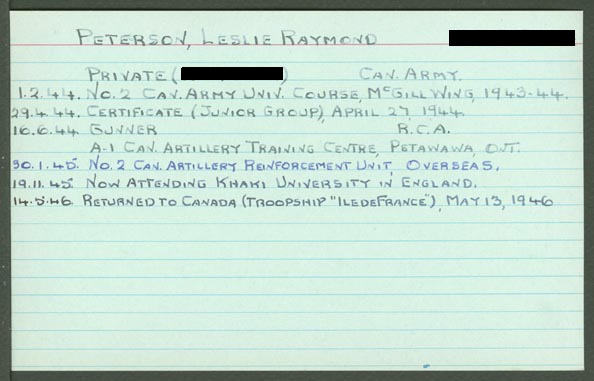 PETERSON, LESLIE RAYMOND
PRIVATE ( ) CAN. ARMY.
1.2.44. No. 2 CAN. ARMY UNIV. COURSE, McGILL WING, 1943-44.
29.4.44. CERTIFICATE (JUNIOR GROUP), APRIL 27, 1944
16.6.44 GUNNER R.C.A.
A-1 CAN. ARTILLERY TRAINING CENTRE, PETAWAWA, ONT.
30.1.45. No. 2 CAN. ARTILLERY REINFORCEMENT UNIT, OVERSEAS.
19.11.45. NOW ATTENDING KHAKI UNIVERSITY IN ENGLAND.
14.5.46. RETURNED TO CANADA (TROOPSHIP "ILE DE FRANCE"), MAY 13, 1946